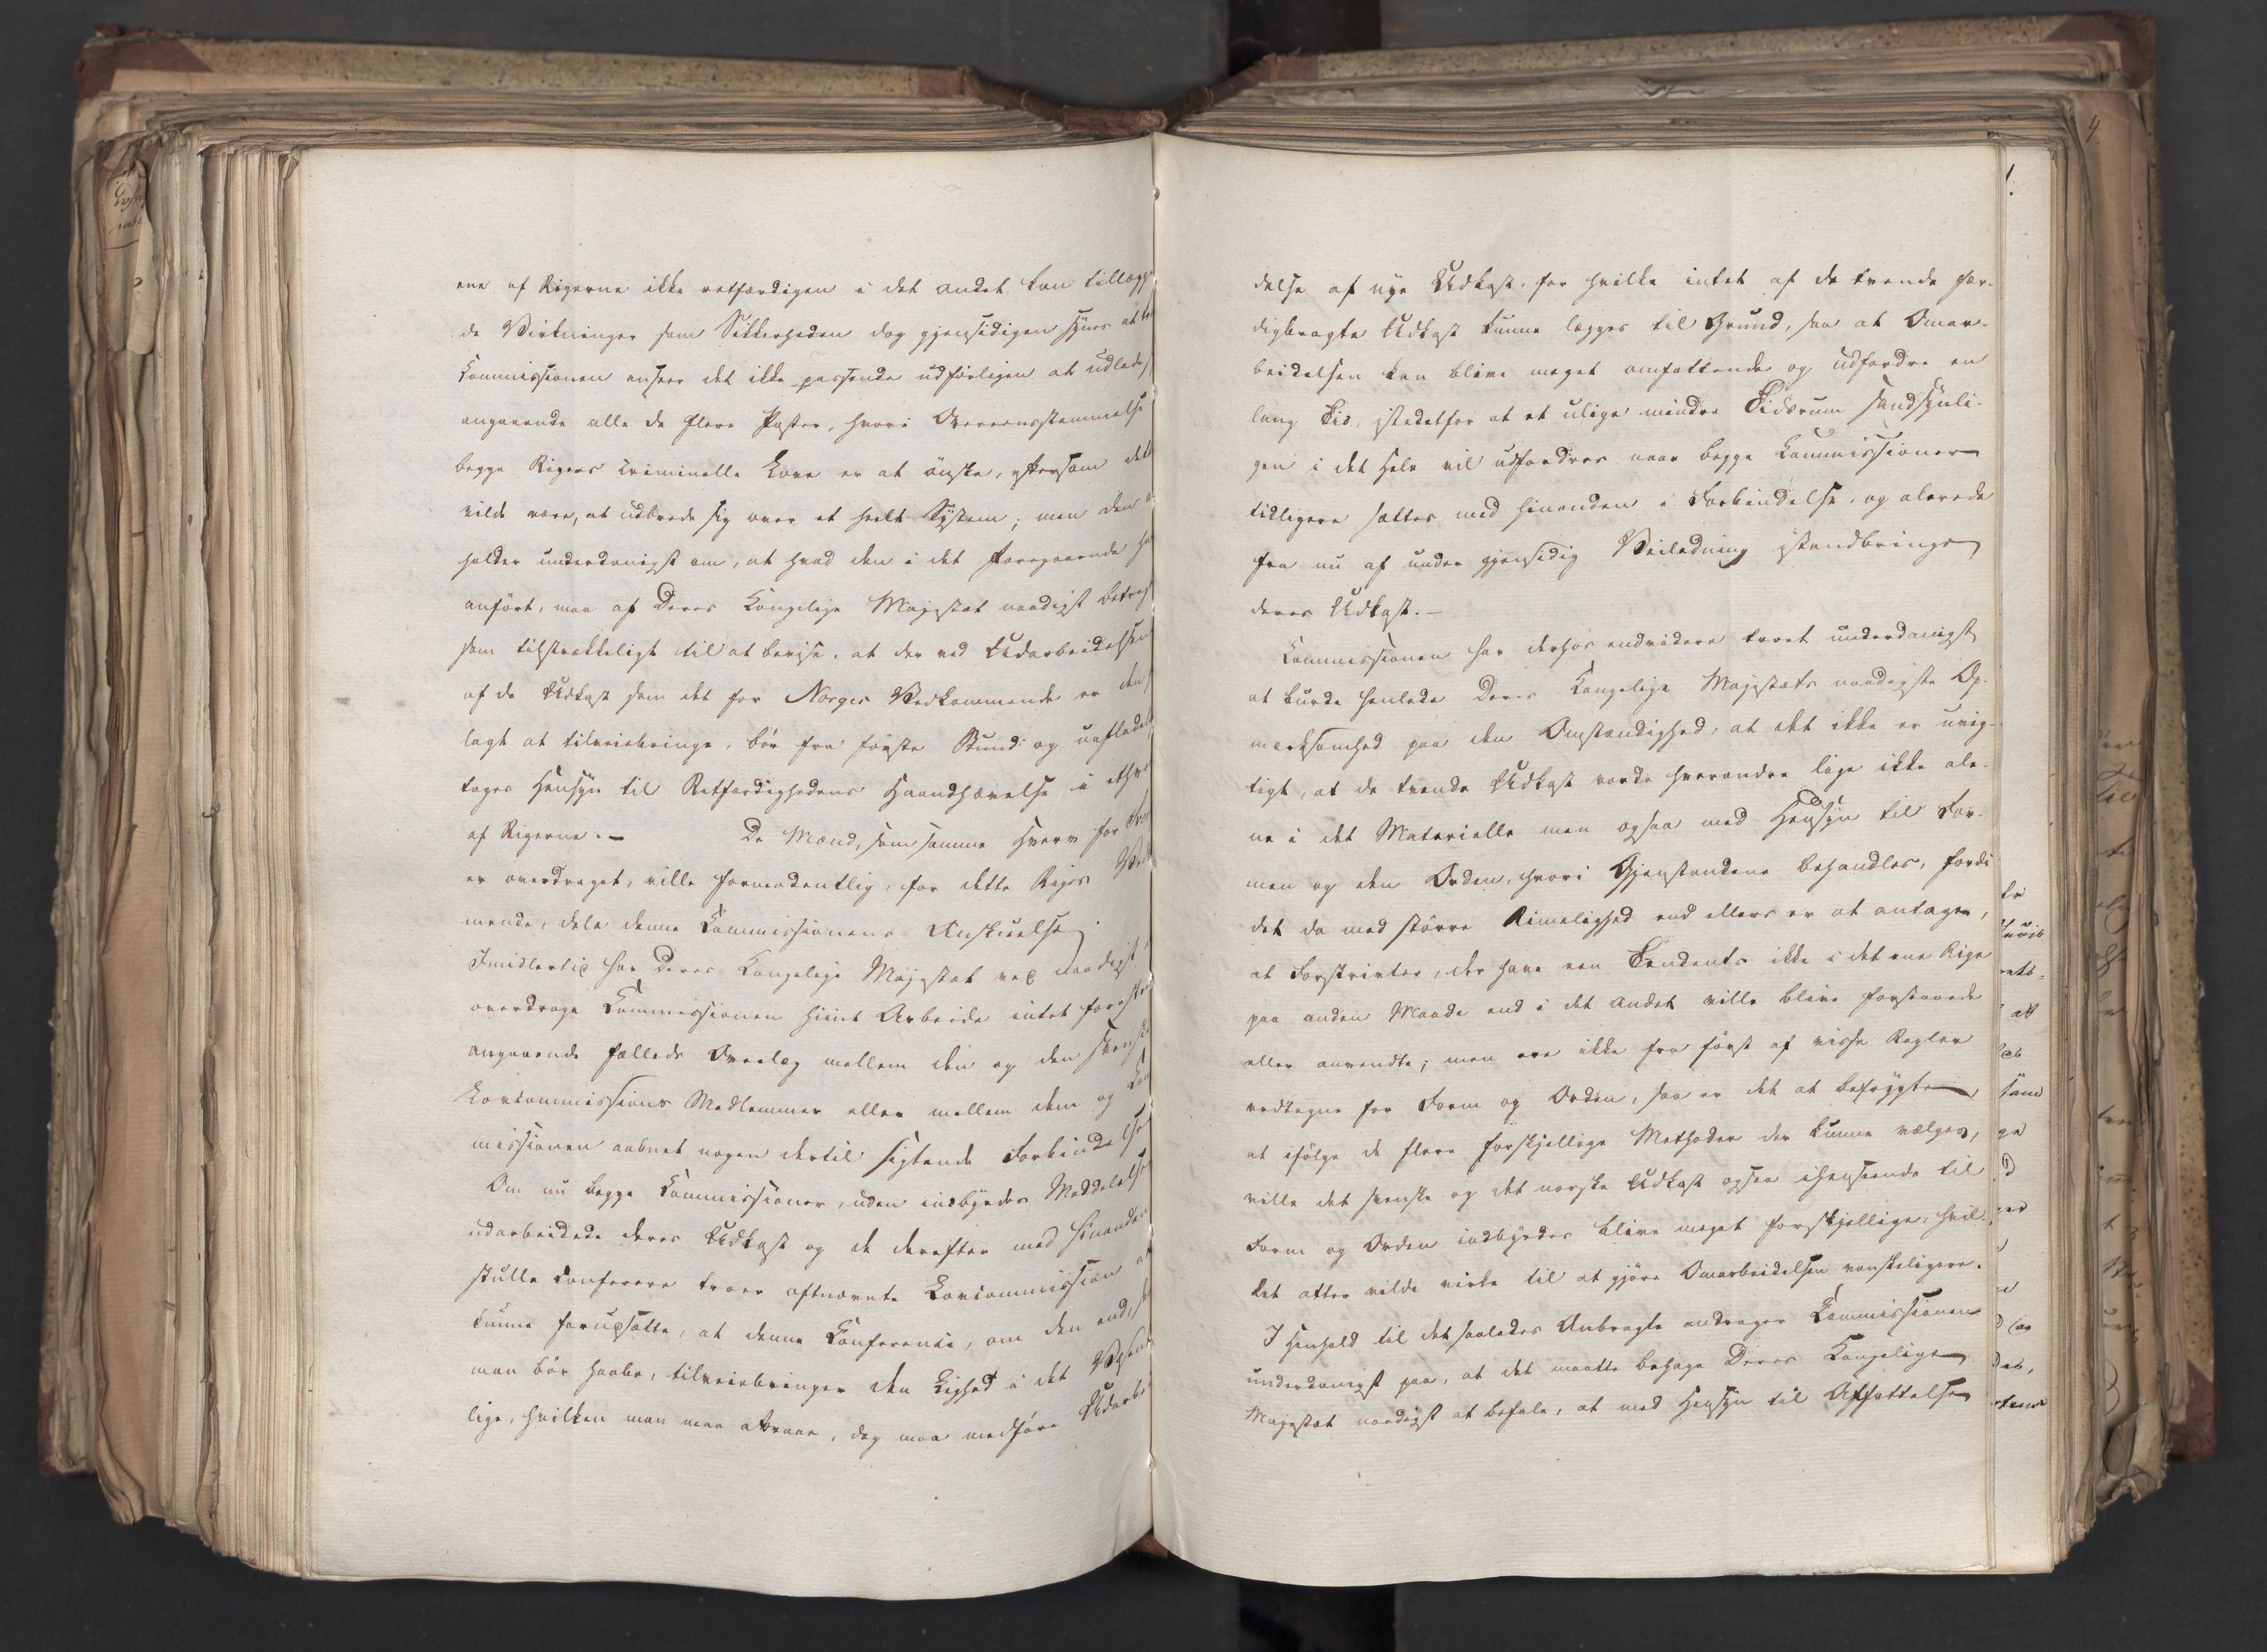 ene af Rigerne ikke retfærdigen i det andet kan tillægg
de Virkninger som Sikkerheden dog gjensidigen synes at
Commissionen ansees det ikke passende udförligen at udlade
angaaende alle de flere Poster, hvori Overeensstemmelse
begge Rigers criminelle Love er at önske, eftersom det
vilde være, at udbrede sig over et heelt System; men den
holder underdanigst om, at hvad den i det foregaaende ha
anfört, maa af Deres Kongelige Majestæt naadigst betrag
som tilstrækkeligt til at bevise, at der ved Udarbeidelsen
af de Udkast som det for Norges Vedkommende er den
lagt at tilveiebringe, bör fra förste Stund og uafladel
tages Hensyn til Retfærdighedens Haandhævelse i ethve
af Rigerne. — De Mænd, som samme Hverv for
er overdraget, ville formodentlig, for dette Riges Ved
mende, dele denne Commissionens Anskuelse.
Imidlertid har Deres Kongelige Majestæt ved naadigst
overdrage Commissionen hiint Arbeide intet foreskre
angaaende fælleds Overlæg mellem den og den svenske
Lovcommissions Medlemmer eller mellem dem og Com
missionen aabnet nogen dertil sigtende Forbindelse
Om nu begge Commissioner, uden indbyrdes Meddelelse
udarbeidede deres Udkast og de derefter med hinanden
skulle conferere troer oftnævnte Lovcommission at
kunne forudsætte, at denne Conference, om den end,
man bör haabe, tilveiebringer den Lighed i det Væsent
lige, hvilken man maa attraae, dog maa medföre Udarbei
delse af nye Udkast, for hvilke intet af de trende fær-
digbragte Udkast kunne lægges til Grund, saa at Omar-
beidelsen kan blive meget omfattende og udfordre en
lang Tid, istedetfor at et ulige mindre Tidsrum sandsynli-
gen i det Hele vil udfordres naar begge Commissioner
tidligere sættes med hinanden i Forbindelse, og alerede
fra nu af under gjensidig Veiledning istandbringe
deres Udkast. —
Commissionen har derhos endvidere troet underdanigst
at burde henlede Deres Kongelige Majestæts naadigste Op-
mærksomhed paa den Omstændighed, at det ikke er uvig-
tigt, at de tvende Udkast vorde hverandre lige ikke ale-
ne i det Materielle men ogsaa med Hensyn til For-
men og den Orden, hvori Gjenstandene behandles, fordi
det da med större Rimelighed end ellers er at antage,
at Forskrivter, der have een Tendents ikke i det ene Rige
paa anden Maade end i det andet ville blive forstaaede
eller anvendte; men ere ikke fra först af visse Regler
vedtagne for Form og Orden, saa er det at befrygte,
at ifölge de flere forskjellige Methoder der kunne vælges,
ville det svenske og det norske Udkast ogsaa ihenseende til
Form og Orden indbyrdes blive meget forskjellige, hvil-
ket atter vilde virke til at gjöre Omarbeidelsen vanskeligere.
I Henhold til det saaledes Anbragte andrager Commissionen
underdanigst paa, at det maatte behage Deres Kongelige
Majestæt naadigst at befale, at med Hensyn til Affattelse